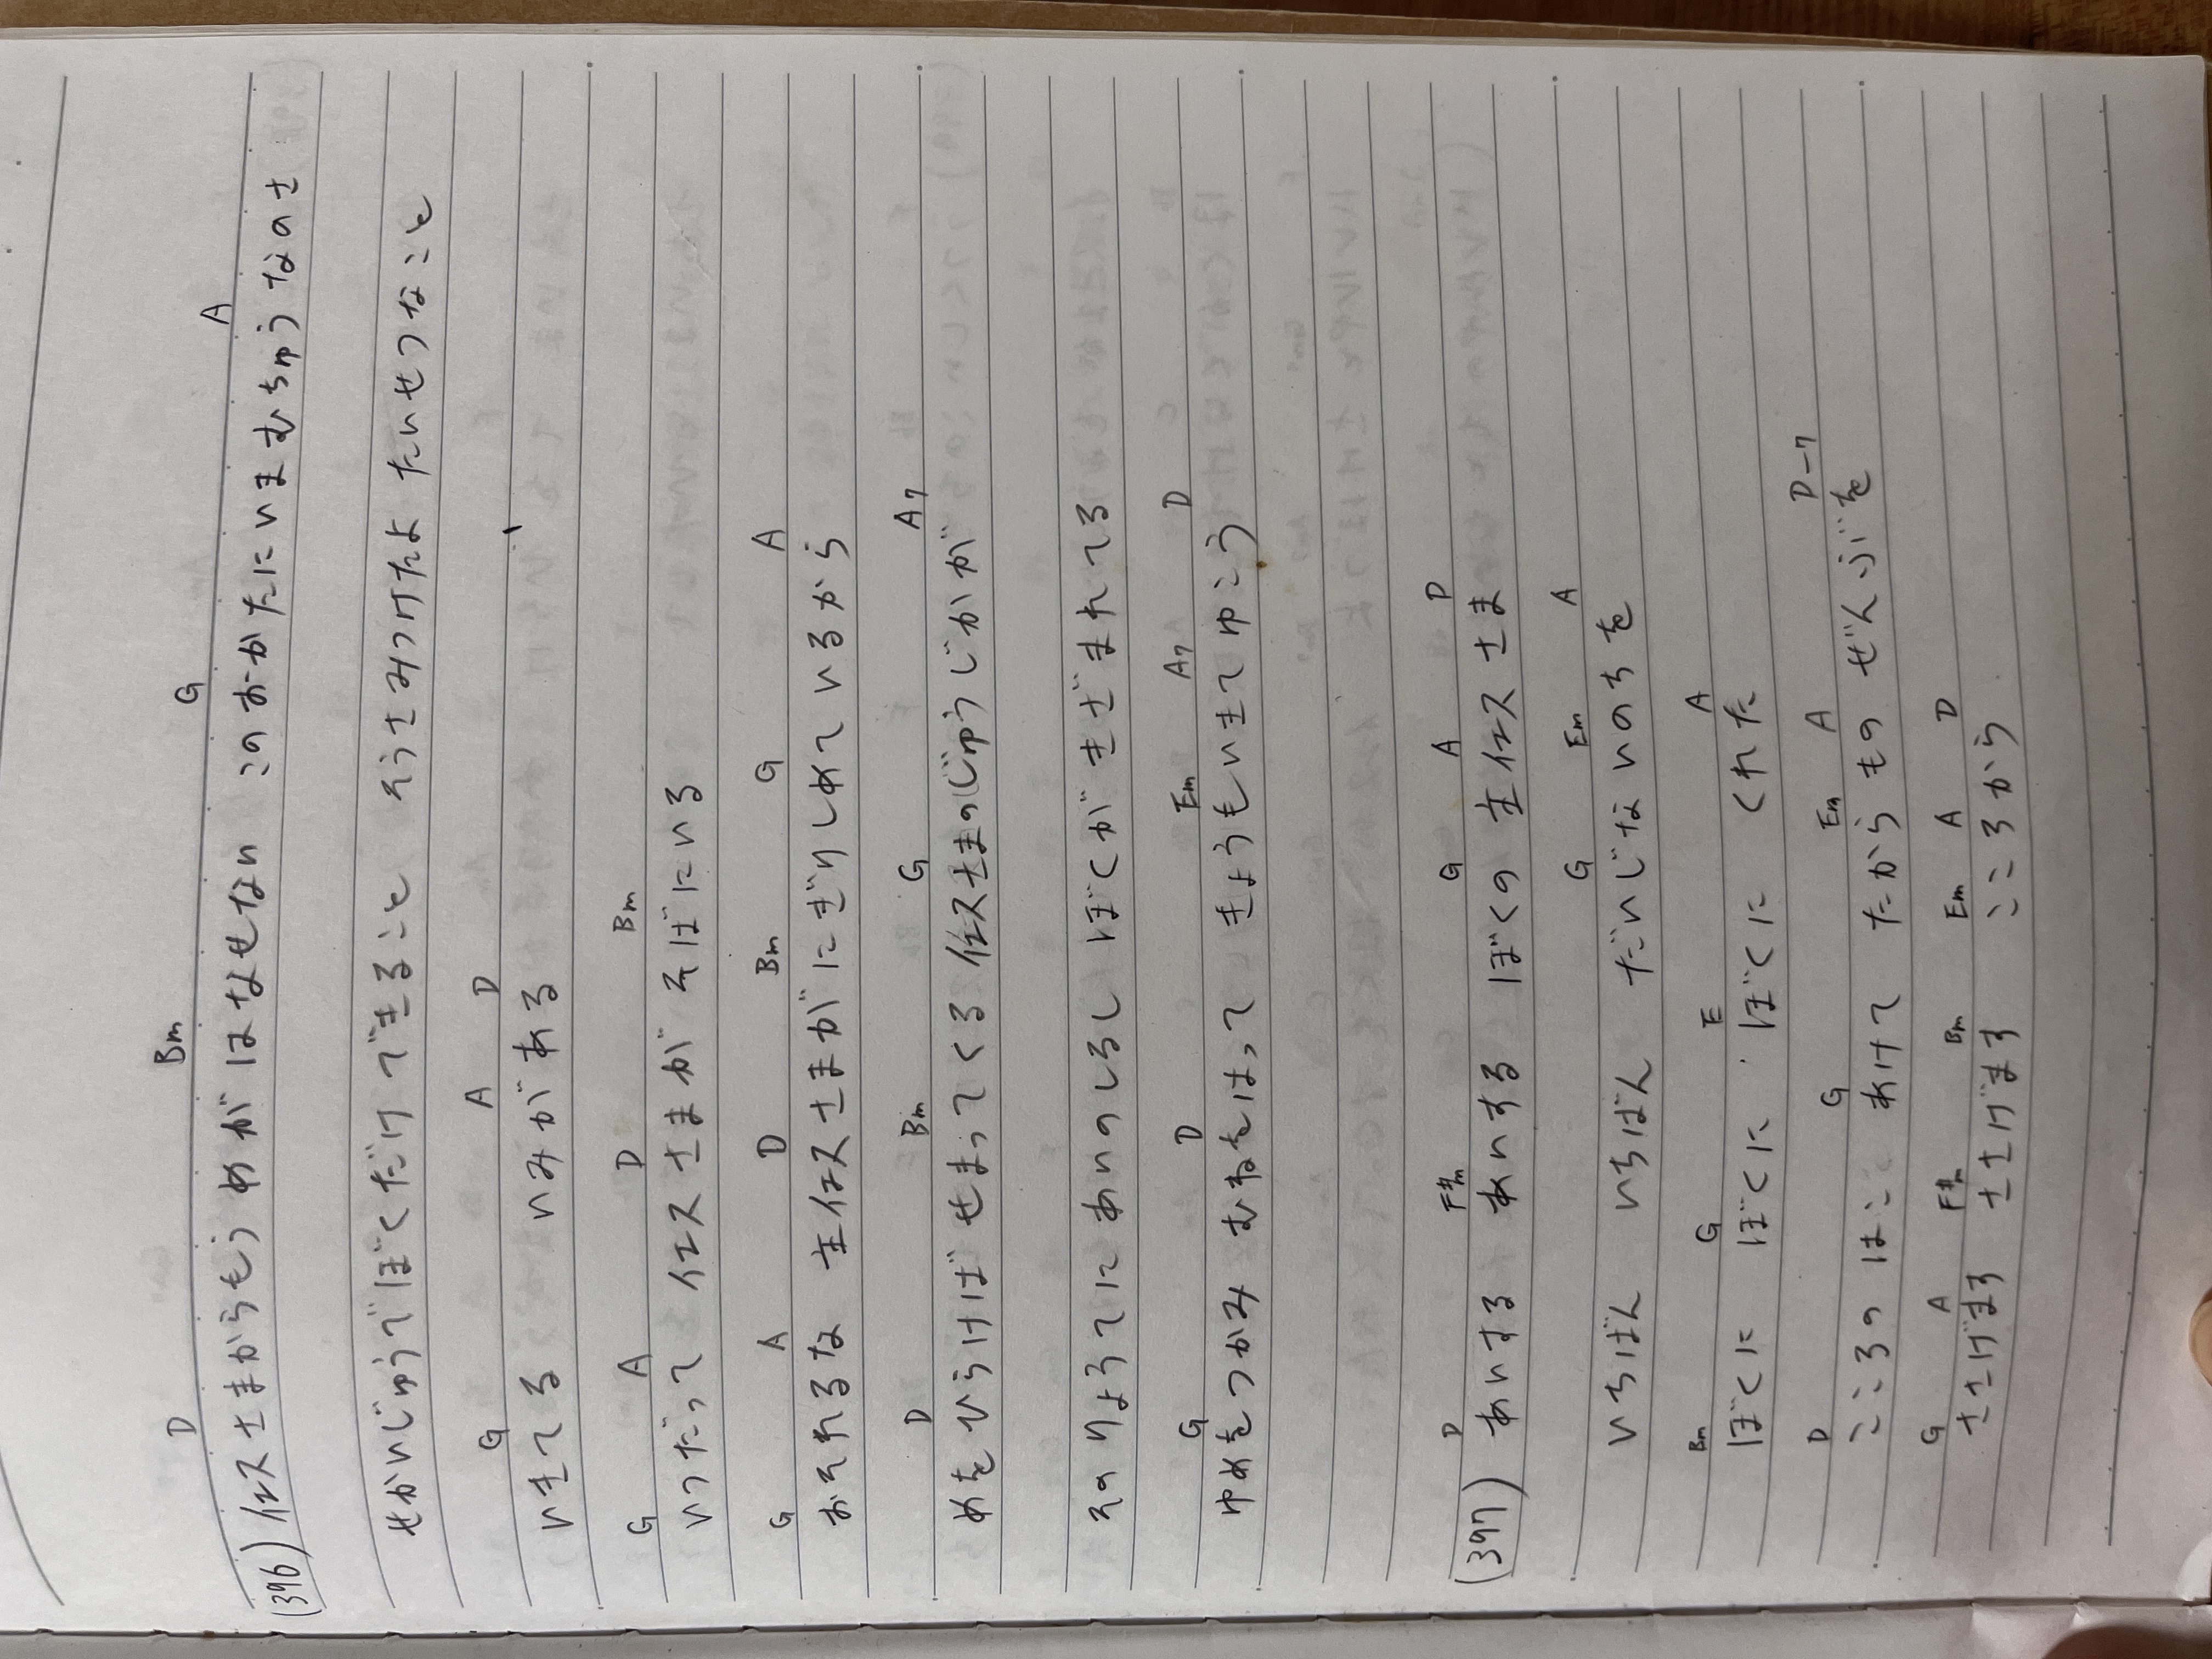 D Bm G A
(396) イエスさまからもう めが はなせない このおかたに いま むちゅうなのさ
せかいじゅうで ぼくだけ できること そうさ みつけたよ たいせつなこと
G A D
いきてる いみがある
G A D Bm
いつだって イエスさまが そばにいる
G A D Bm G A
おそれるな 主イエスさまが にぎりしめているから
D Bm G A7
めを ひらけば せまってくる イエスさまの じゅうじかが
そのりょうてに あいのしるし ぼくが きざまれてる
G D Em A7 D
ゆめをつかみ むねをはって きょうも いきてゆこう
D F#m G A D
(397) あいする あいする ぼくの 主イエスさま
G Em A
いちばん いちばん だいじな いのちを
Bm G E A
ぼくに ぼくに ぼくに くれた
D G Em A D-7
こころの はこ あけて たからもの ぜんぶを
G A F#m Bm Em A D
ささげます ささげます こころから